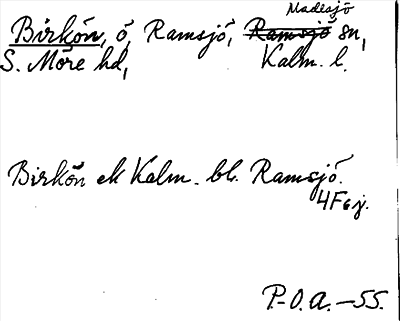 Madesjö
Birkön, ö, Ramsjö, Ramsjö sn,
S. Möre hd, Kalm. l.
Birkön ek Kalm. bl. Ramsjö.
4F6j.
P-O.A.-55.